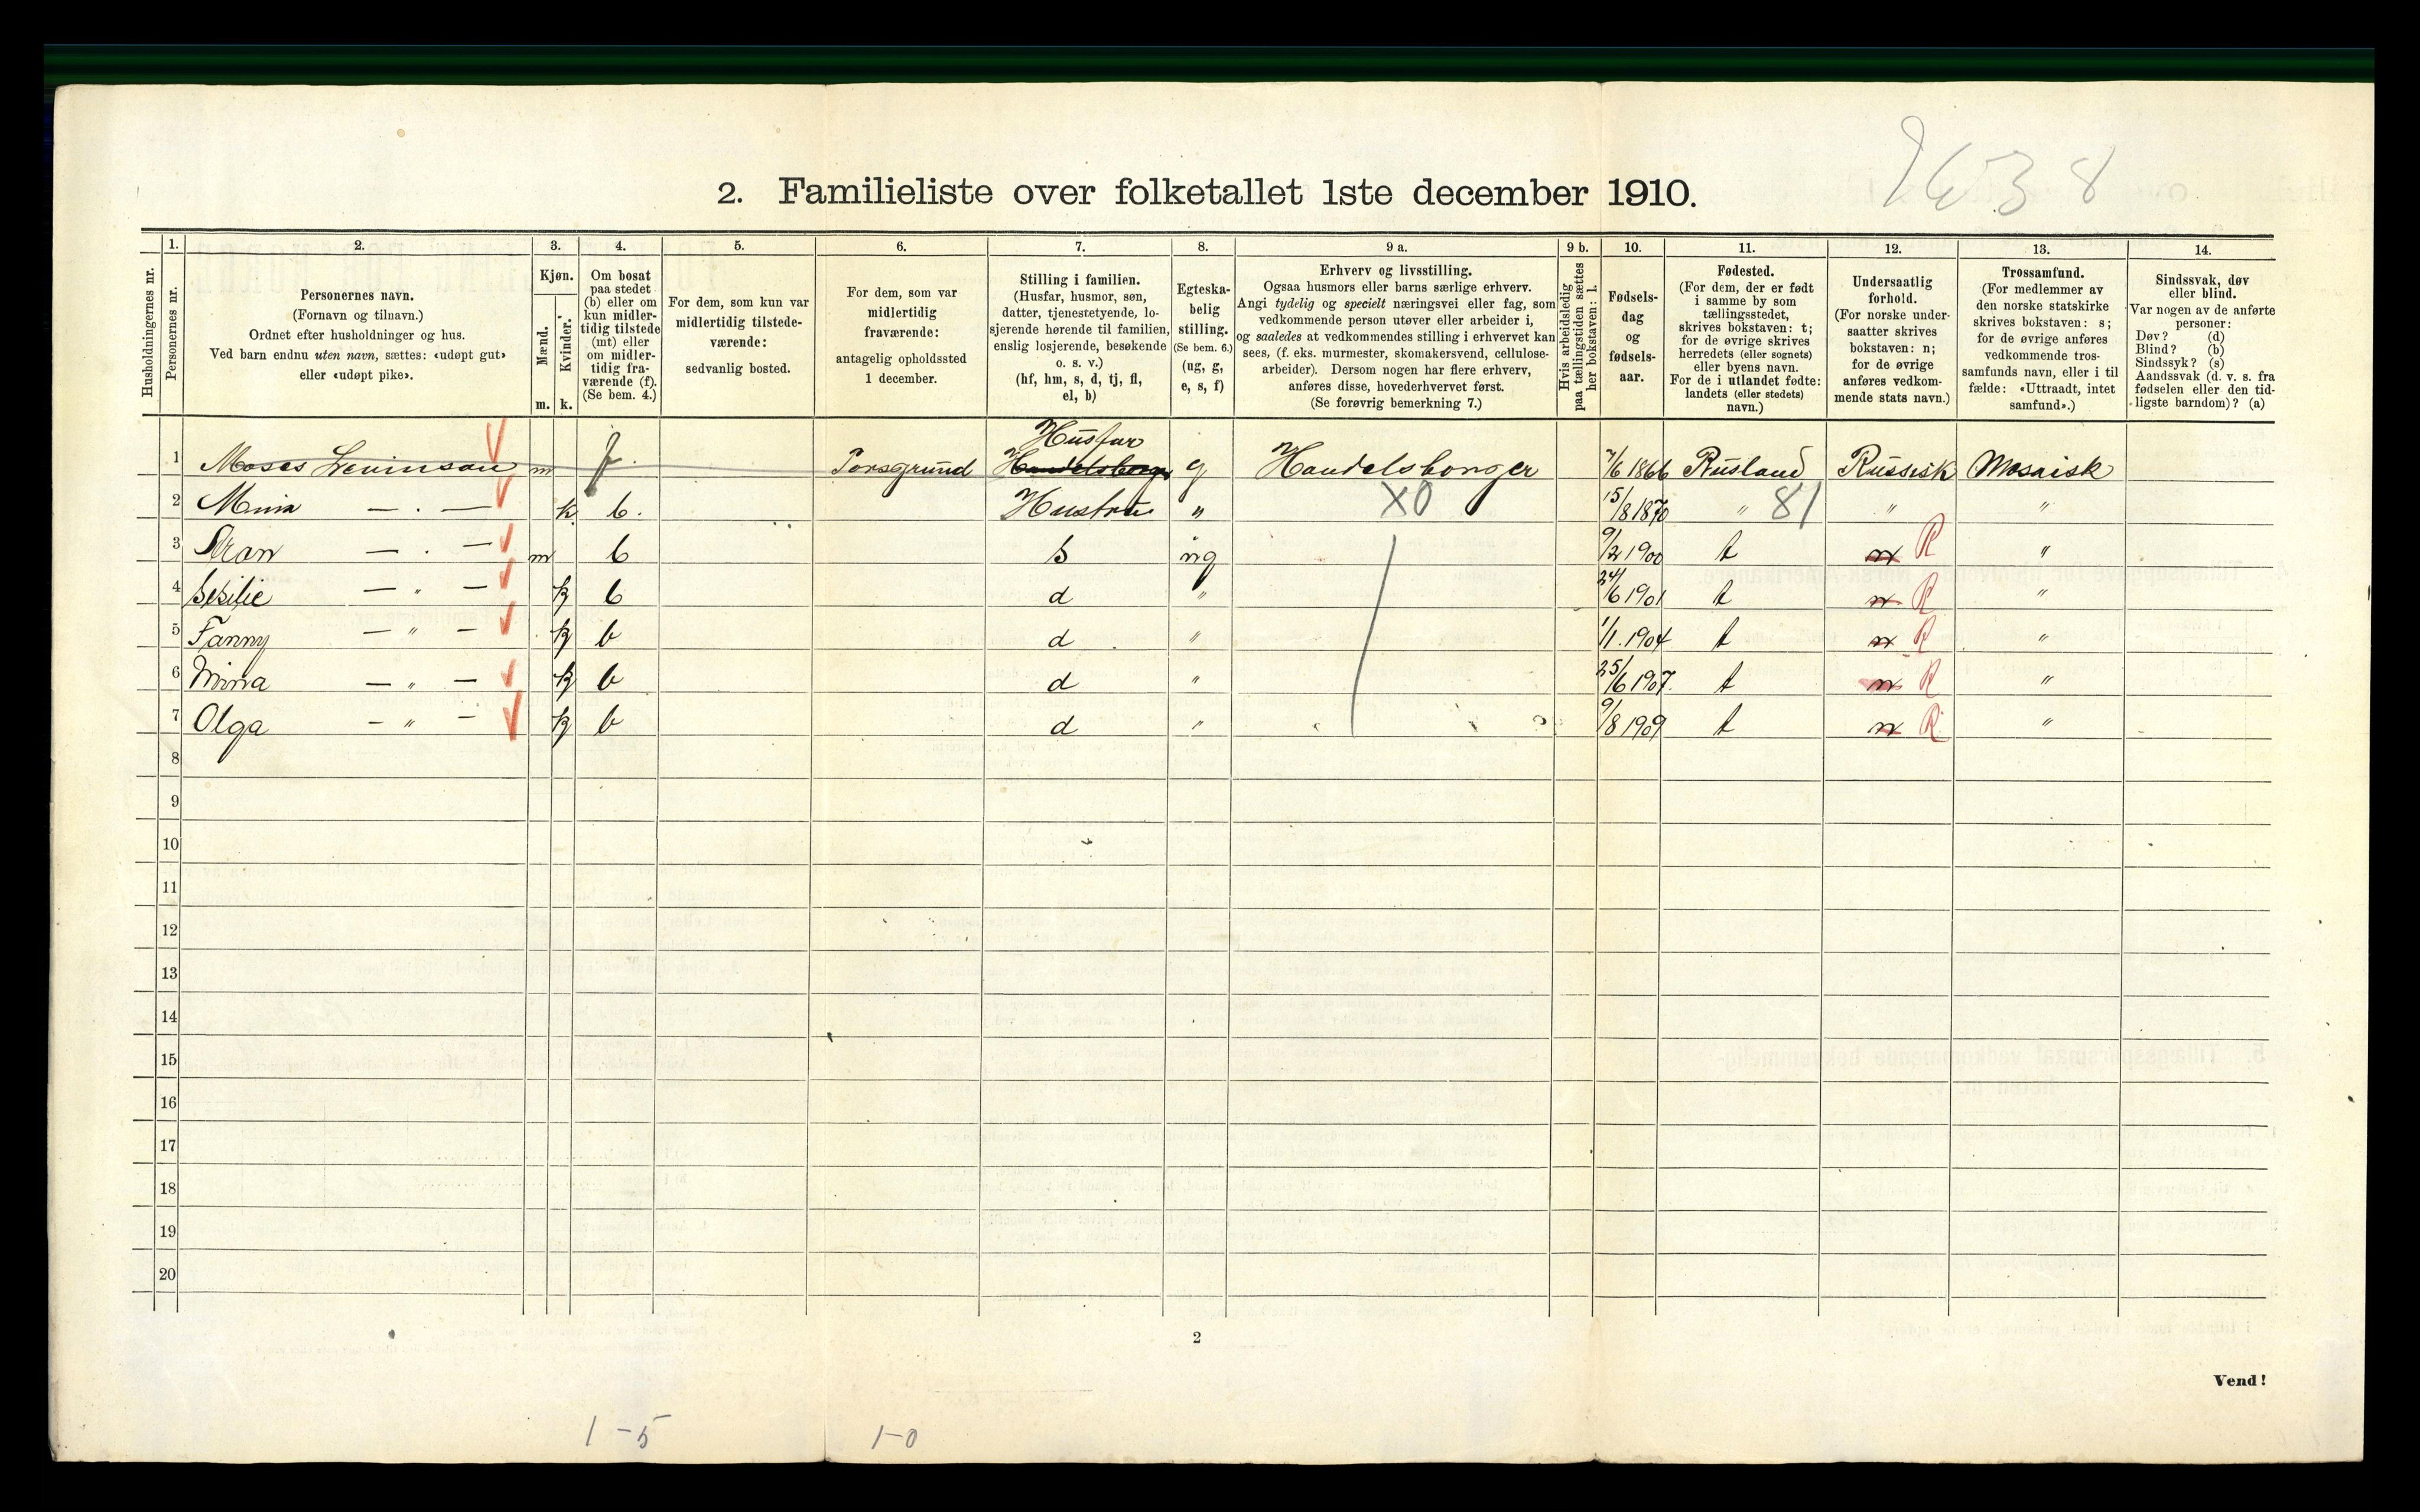 2638
2. Familieliste over folketallet 1ste december 1910.
Husholdningernes nr.
1. Personernes nr.
2. Personernes navn. (Fornavn og tilnavn.) Ordnet efter husholdninger og hus. Ved barn endnu uten navn, sættes: «udøpt gut» eller «udøpt pike».
3. Kjøn. Mænd. m. Kvinder. k.
4. Om bosat paa stedet (b) eller om kun midlertidig tilstede (mt) eller om midlertidig fraværende (f). (Se bem. 4.)
5. For dem, som kun var midlertidig tilstedeværende: sedvanlig bosted.
6. For dem, som var midlertidig fraværende: antagelig opholdssted 1 december.
7. Stilling i familien. (Husfar, husmor, søn, datter, tjenestetyende, losjerende hørende til familien, enslig losjerende, besøkende o. s. v.) (hf, hm, s, d, tj, fl, el, b)
8. Egteskabelig stilling. (Se bem. 6.) (ug, g, e, s, f)
9 a. Erhverv og livsstilling. Ogsaa husmors eller barns særlige erhverv. Angi tydelig og specielt næringsvei eller fag, som vedkommende person utøver eller arbeider i, og saaledes at vedkommendes stilling i erhvervet kan sees, (f. eks. murmester, skomakersvend, cellulosearbeider). Dersom nogen har flere erhverv, anføres disse, hovederhvervet først. (Se forøvrig bemerkning 7.)
9 b. Hvis arbeidsledig paa tællingstiden sættes her bokstaven: l.
10. Fødselsdag og fødselsaar.
11. Fødested. (For dem, der er født i samme by som tællingsstedet, skrives bokstaven: t; for de øvrige skrives herredets (eller sognets) eller byens navn. For de i utlandet fødte: landets (eller stedets) navn.)
12. Undersaatlig forhold. (For norske undersaatter skrives bokstaven: n; for de øvrige anføres vedkommende stats navn.)
13. Trossamfund. (For medlemmer av den norske statskirke skrives bokstaven: s; for de øvrige anføres vedkommende trossamfunds navn, eller i tilfælde: «Uttraadt, intet samfund».)
14. Sindssvak, døv eller blind. Var nogen av de anførte personer: Døv? (d) Blind? (b) Sindssyk? (s) Aandssvak (d. v. s. fra fødselen eller den tidligste barndom)? (a)
1 Moses Levinson m f. Porsgrund Husfar Handelsborger g Handelsborger 7/6 1866 Rusland Russisk Mosaisk
2 Mina — . — k b. Hustru " X0 15/8 1870 " 81 " "
3 Aran — . — m b s ug 9/2 1900 t n R "
4 Sesilie — " — k b d " 24/6 1901 t n R "
5 Fanny — " — k b d " 1/1. 1904 t n R "
6 Mina — " — k b d " 25/6 1907. t n R "
7 Olga — " — k b d " 9/8 1909 t n R "
8
9
10
11
12
13
14
15
16
17
18
19
20
2
Vend!
1-5 1-0